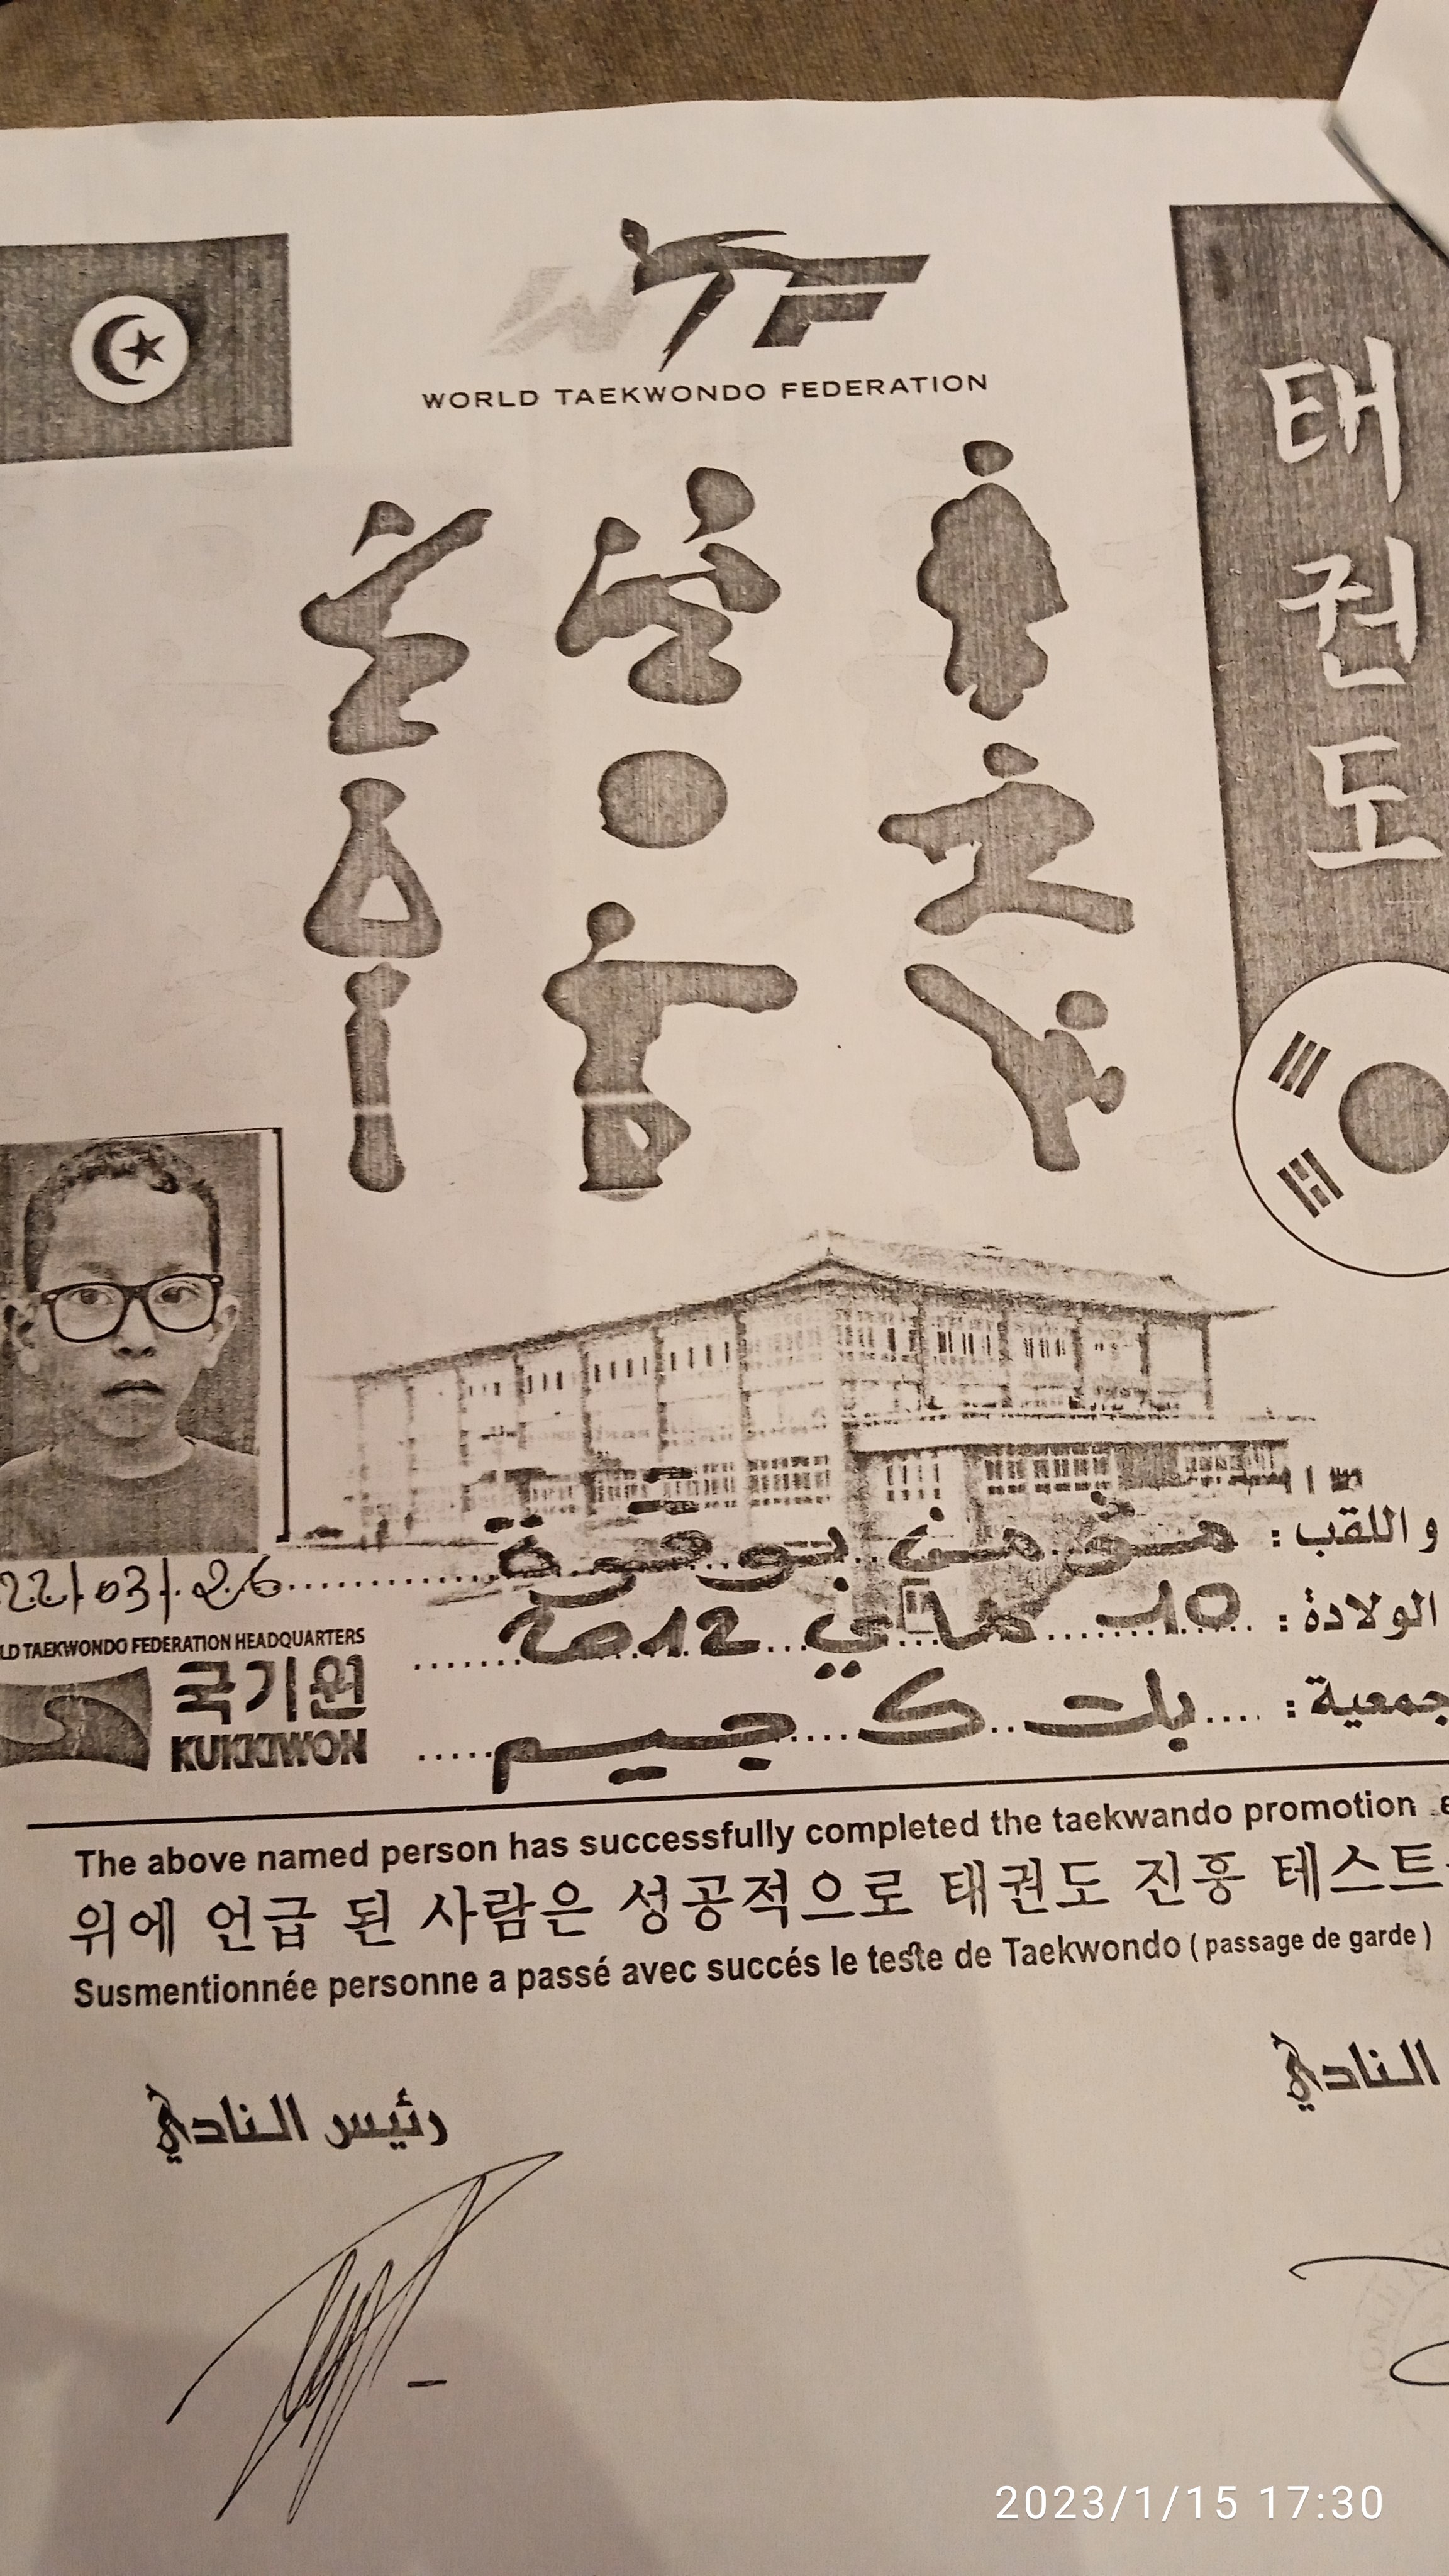 WTF
WORLD TAEKWONDO FEDERATION
태권도
و اللقب : مؤمن بوقرة
22/03/26
الولادة : 10 ماي 2012
LD TAEKWONDO FEDERATION HEADQUARTERS
국기원
KUKKIWON
جمعية : بلت ك جيم
The above named person has successfully completed the taekwando promotion
위에 언급 된 사람은 성공적으로 태권도 진흥 테스트
Susmentionnée personne a passé avec succés le teste de Taekwondo ( passage de garde )
النادي
رئيس النادي
2023/1/15 17:30